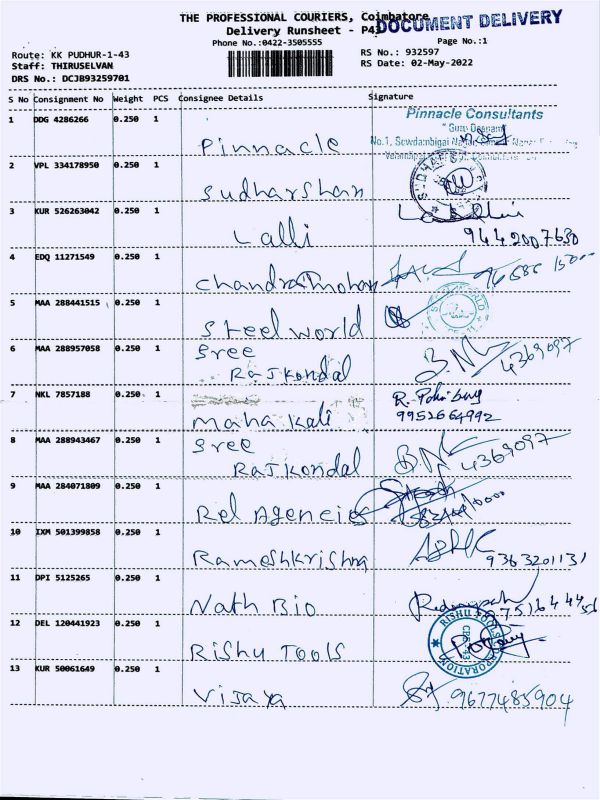 THE PROFESSIONAL COURIERS, Coimbatore
DOCUMENT DELIVERY
Delivery Runsheet - P43
Phone No.:0422-3505555
Page No.:1
Route: KK PUDHUR-1-43
RS No.: 932597
Staff: THIRUSELVAN
RS Date: 02-May-2022
DRS No.: DCJB93259701
S No Consignment No Weight PCS Consignee Details Signature
1 DDG 4286266 0.250 1 Pinnacle
Pinnacle Consultants
2 VPL 334178950 0.250 1 Sudharshan
3 KUR 526263042 0.250 1 Lalli
9442007630
4 EDQ 11271549 0.250 1 Chandramohan
5 MAA 288441515 0.250 1 Steel world
6 MAA 288957058 0.250 1 Sree
Rajkondal
4369097
7 NKL 7857188 0.250 1 Maha Kali
9952664992
8 MAA 288943467 0.250 1 Sree
Rajkondal
4369097
9 MAA 284071809 0.250 1 Rel Agencies
10 IXM 501399858 0.250 1 Rameshkrishna
9363201131
11 DPI 5125265 0.250 1 Nath Bio
12 DEL 120441923 0.250 1 Rishu Tools
RISHU TOOLS CORPORATION
13 KUR 50061649 0.250 1 Vijaya
9677485904